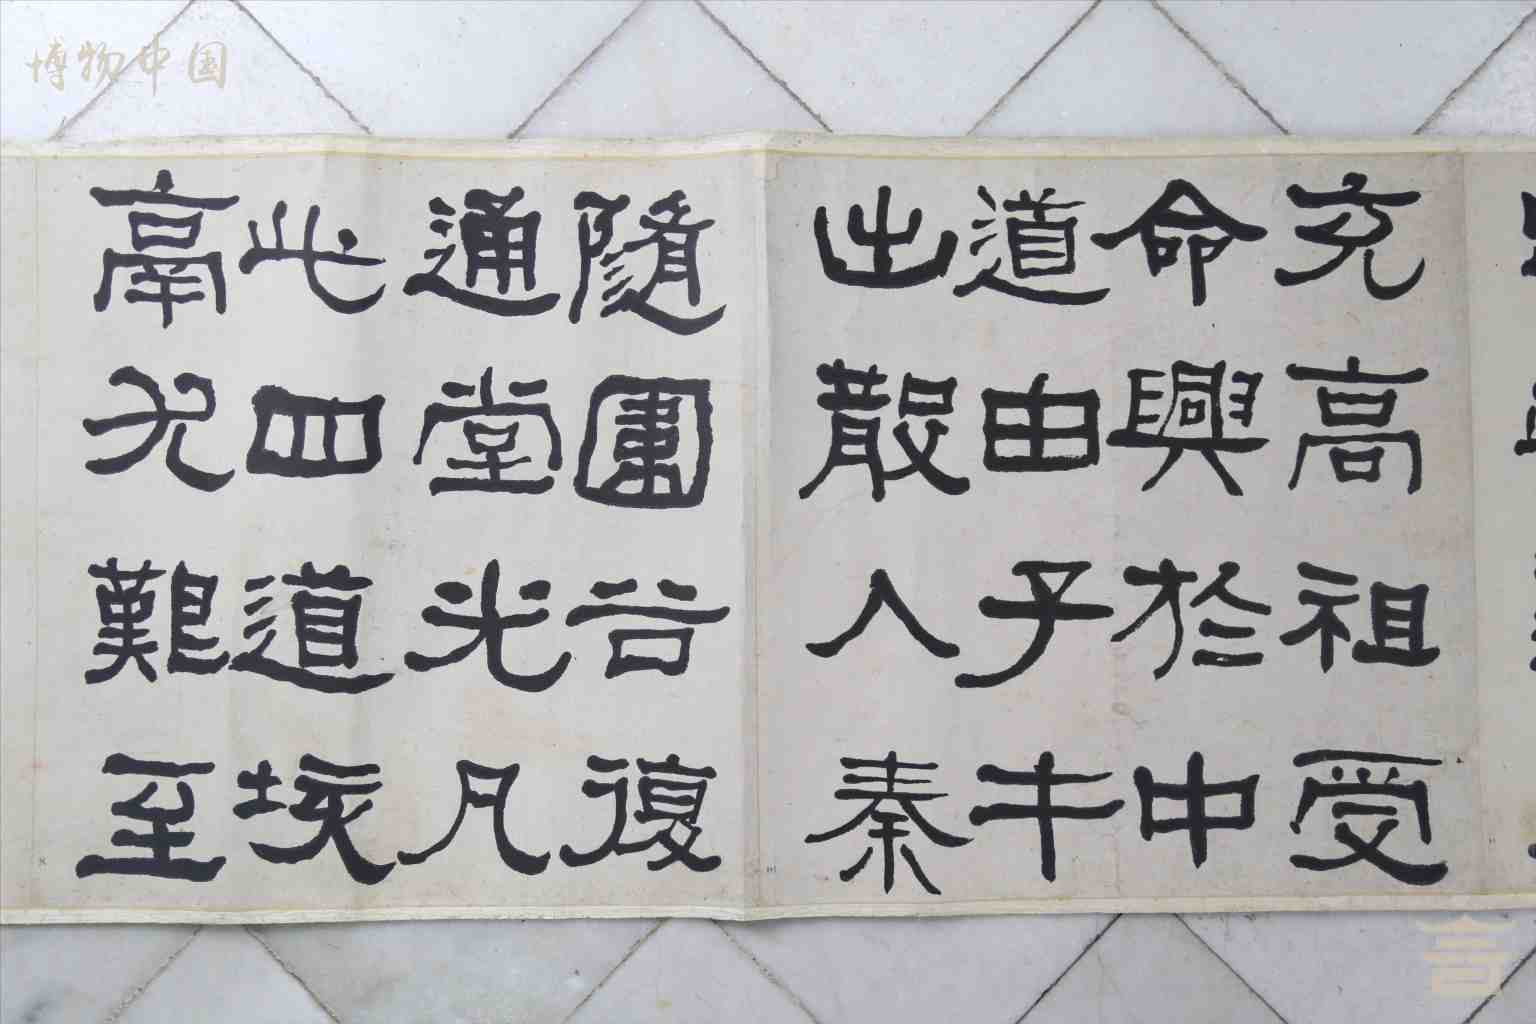 博物中国
充高祖受
命興於中
道由子午
出散入秦
隨圍谷復
通堂光凡
此四道垓
鬲尤艱至